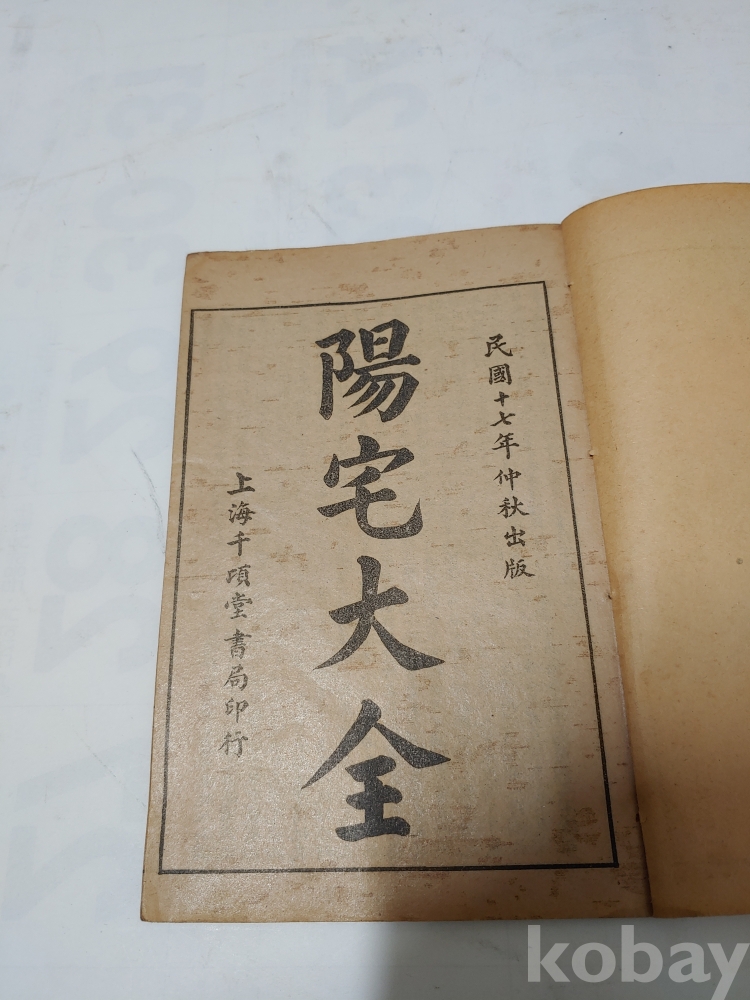 民國十七年仲秋出版
陽宅大全
上海千頃堂書局印行
kobay